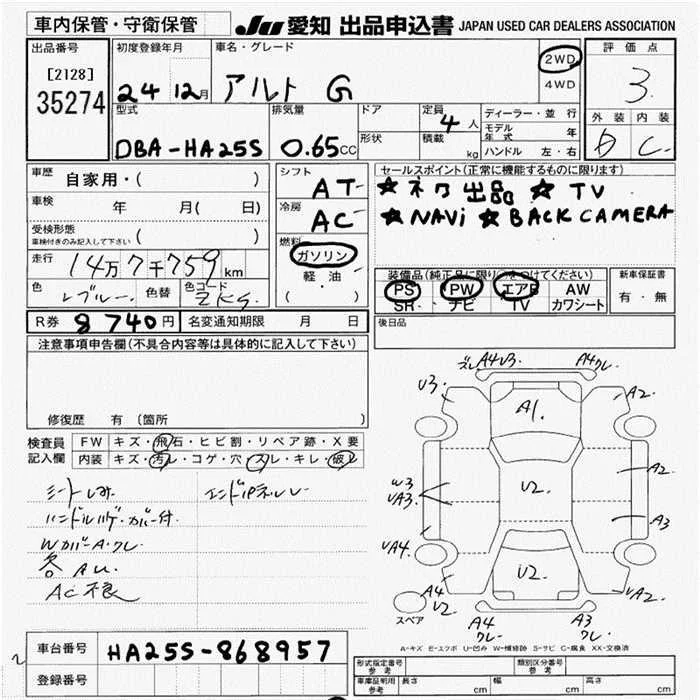 車内保管・守衛保管
JU 愛知 出品申込書 JAPAN USED CAR DEALERS ASSOCIATION
出品番号
[2128]
35274
初度登録年月
24 12月
車名・グレード
アルト G
2WD
4WD
評価点
3
外装 内装
C
型式
DBA-HA25S
排気量
0.65CC
ドア
形状
定員
4人
積載
kg
ディーラー・並行
モデル年式 年
ハンドル 左・右
車歴 自家用・( )
車検 年 月( 日)
受検形態
車検付きのみ記入して下さい ( )
走行 14万7千759km
色 ブルー 色替 色コード ZKS
シフト
AT
冷房
AC
燃料
ガソリン
軽・油
( )
セールスポイント(正常に機能するものに限ります)
★ネク出品 ★TV
★NAVi ★BACK CAMERA
装備品(純正品に限り○をつけてください)
PS PW エアB AW
SR ナビ TV カワシート
新車保証書
有・無
後日品
R券 8740円 名変通知期限 月 日
注意事項申告欄(不具合内容等は具体的に記入して下さい)
修復歴 有 (箇所 )
検査員記入欄
FW キズ・飛石・ヒビ割・リペア跡・X要
内装 キズ・汚レ・コゲ・穴・スレ・キレ・破レ
シートしみ
ハンドルハゲ・カバー付
WカバーA・クレ
各AU
AC不良
ズレ A4U3. A4クレ
U3. A2
A1.
W3
UA3.
U2.
A2
A3
UA4.
U2.
UA2
A4
U2
A4
クレ
A3
クレ
スペア
A-キズ E-エクボ U-凹み W-補修跡 S-サビ C-腐食 XX-交換済
車台番号 HA25S-868957
登録番号
形式指定番号
参考
類別区分番号
参考
車庫証明用
参考
長さ cm 幅 cm 高さ cm